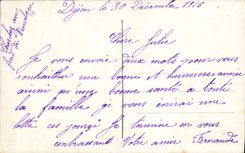 Dijon le 30 Décembre 1916
Chère Julie
Je vous envoie deux mots pour vous
souhaiter une bonne et heureuse année
ainsi qu'une bonne santé a toute
la famille je vous enverai une
lettre ces jours Je termine en vous
embrassant Votre amie Fernande